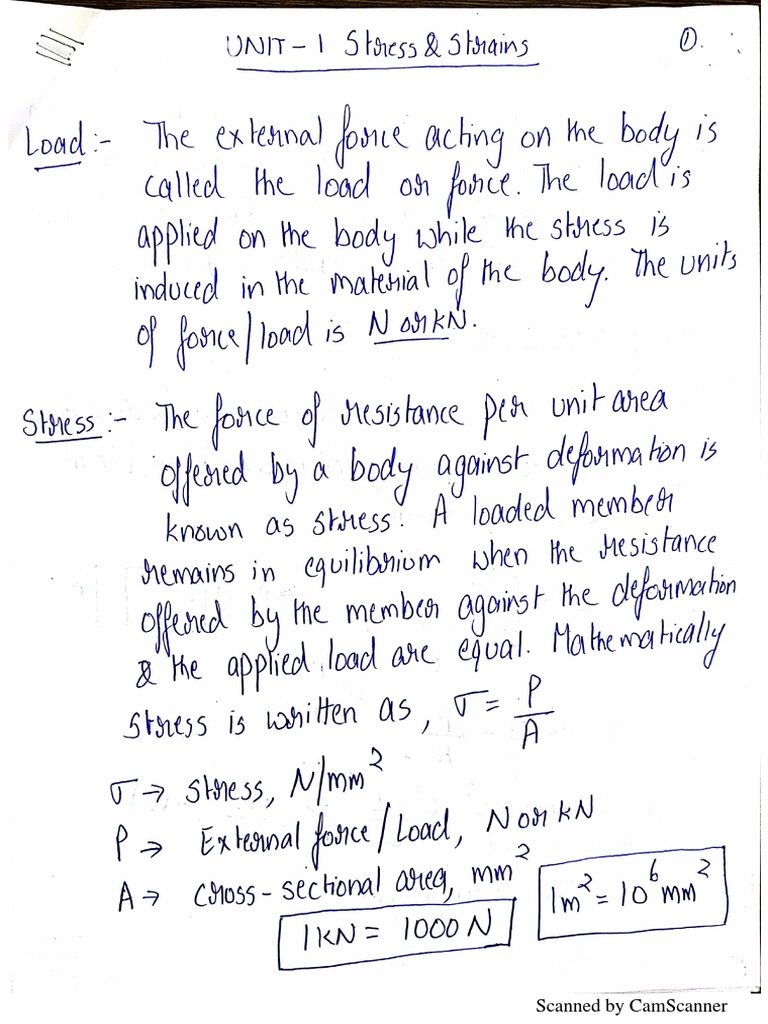 UNIT - 1 Stress & Strains
①.
Load :- The external force acting on the body is
called the load or force. The load is
applied on the body while the stress is
induced in the material of the body. The units
of force/load is N or kN.
Stress :- The force of resistance per unit area
offered by a body against deformation is
known as stress. A loaded member
remains in equilibrium when the resistance
offered by the member against the deformation
& the applied load are equal. Mathematically
stress is written as, σ = P/A
σ → stress, N/mm²
P → External force/Load, N or kN
A → cross-sectional area, mm²
1m² = 10⁶ mm²
1KN = 1000 N
Scanned by CamScanner